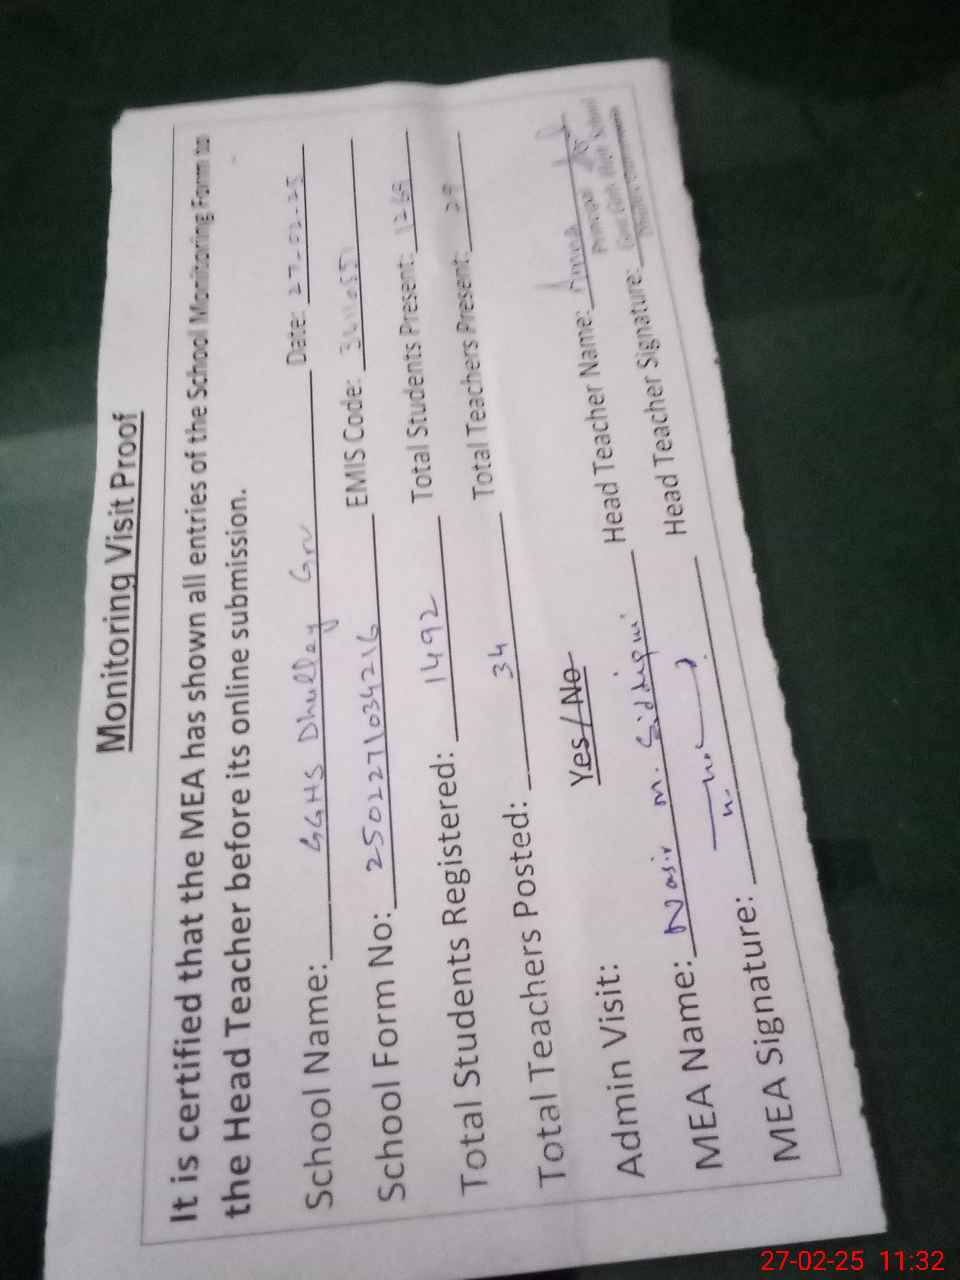 Monitoring Visit Proof
It is certified that the MEA has shown all entries of the School Monitoring Form to
the Head Teacher before its online submission.
School Name: GGHS Dhulley Date: 27-02-25
School Form No: 2502271034216 EMIS Code:
Total Students Registered: 1492 Total Students Present: 1269
Total Teachers Posted: 34 Total Teachers Present: 29
Admin Visit: Yes / No Head Teacher Name:
MEA Name: Nasir M. Siddiqui Head Teacher Signature:
Principal
Govt Girls High School
MEA Signature:
27-02-25 11:32